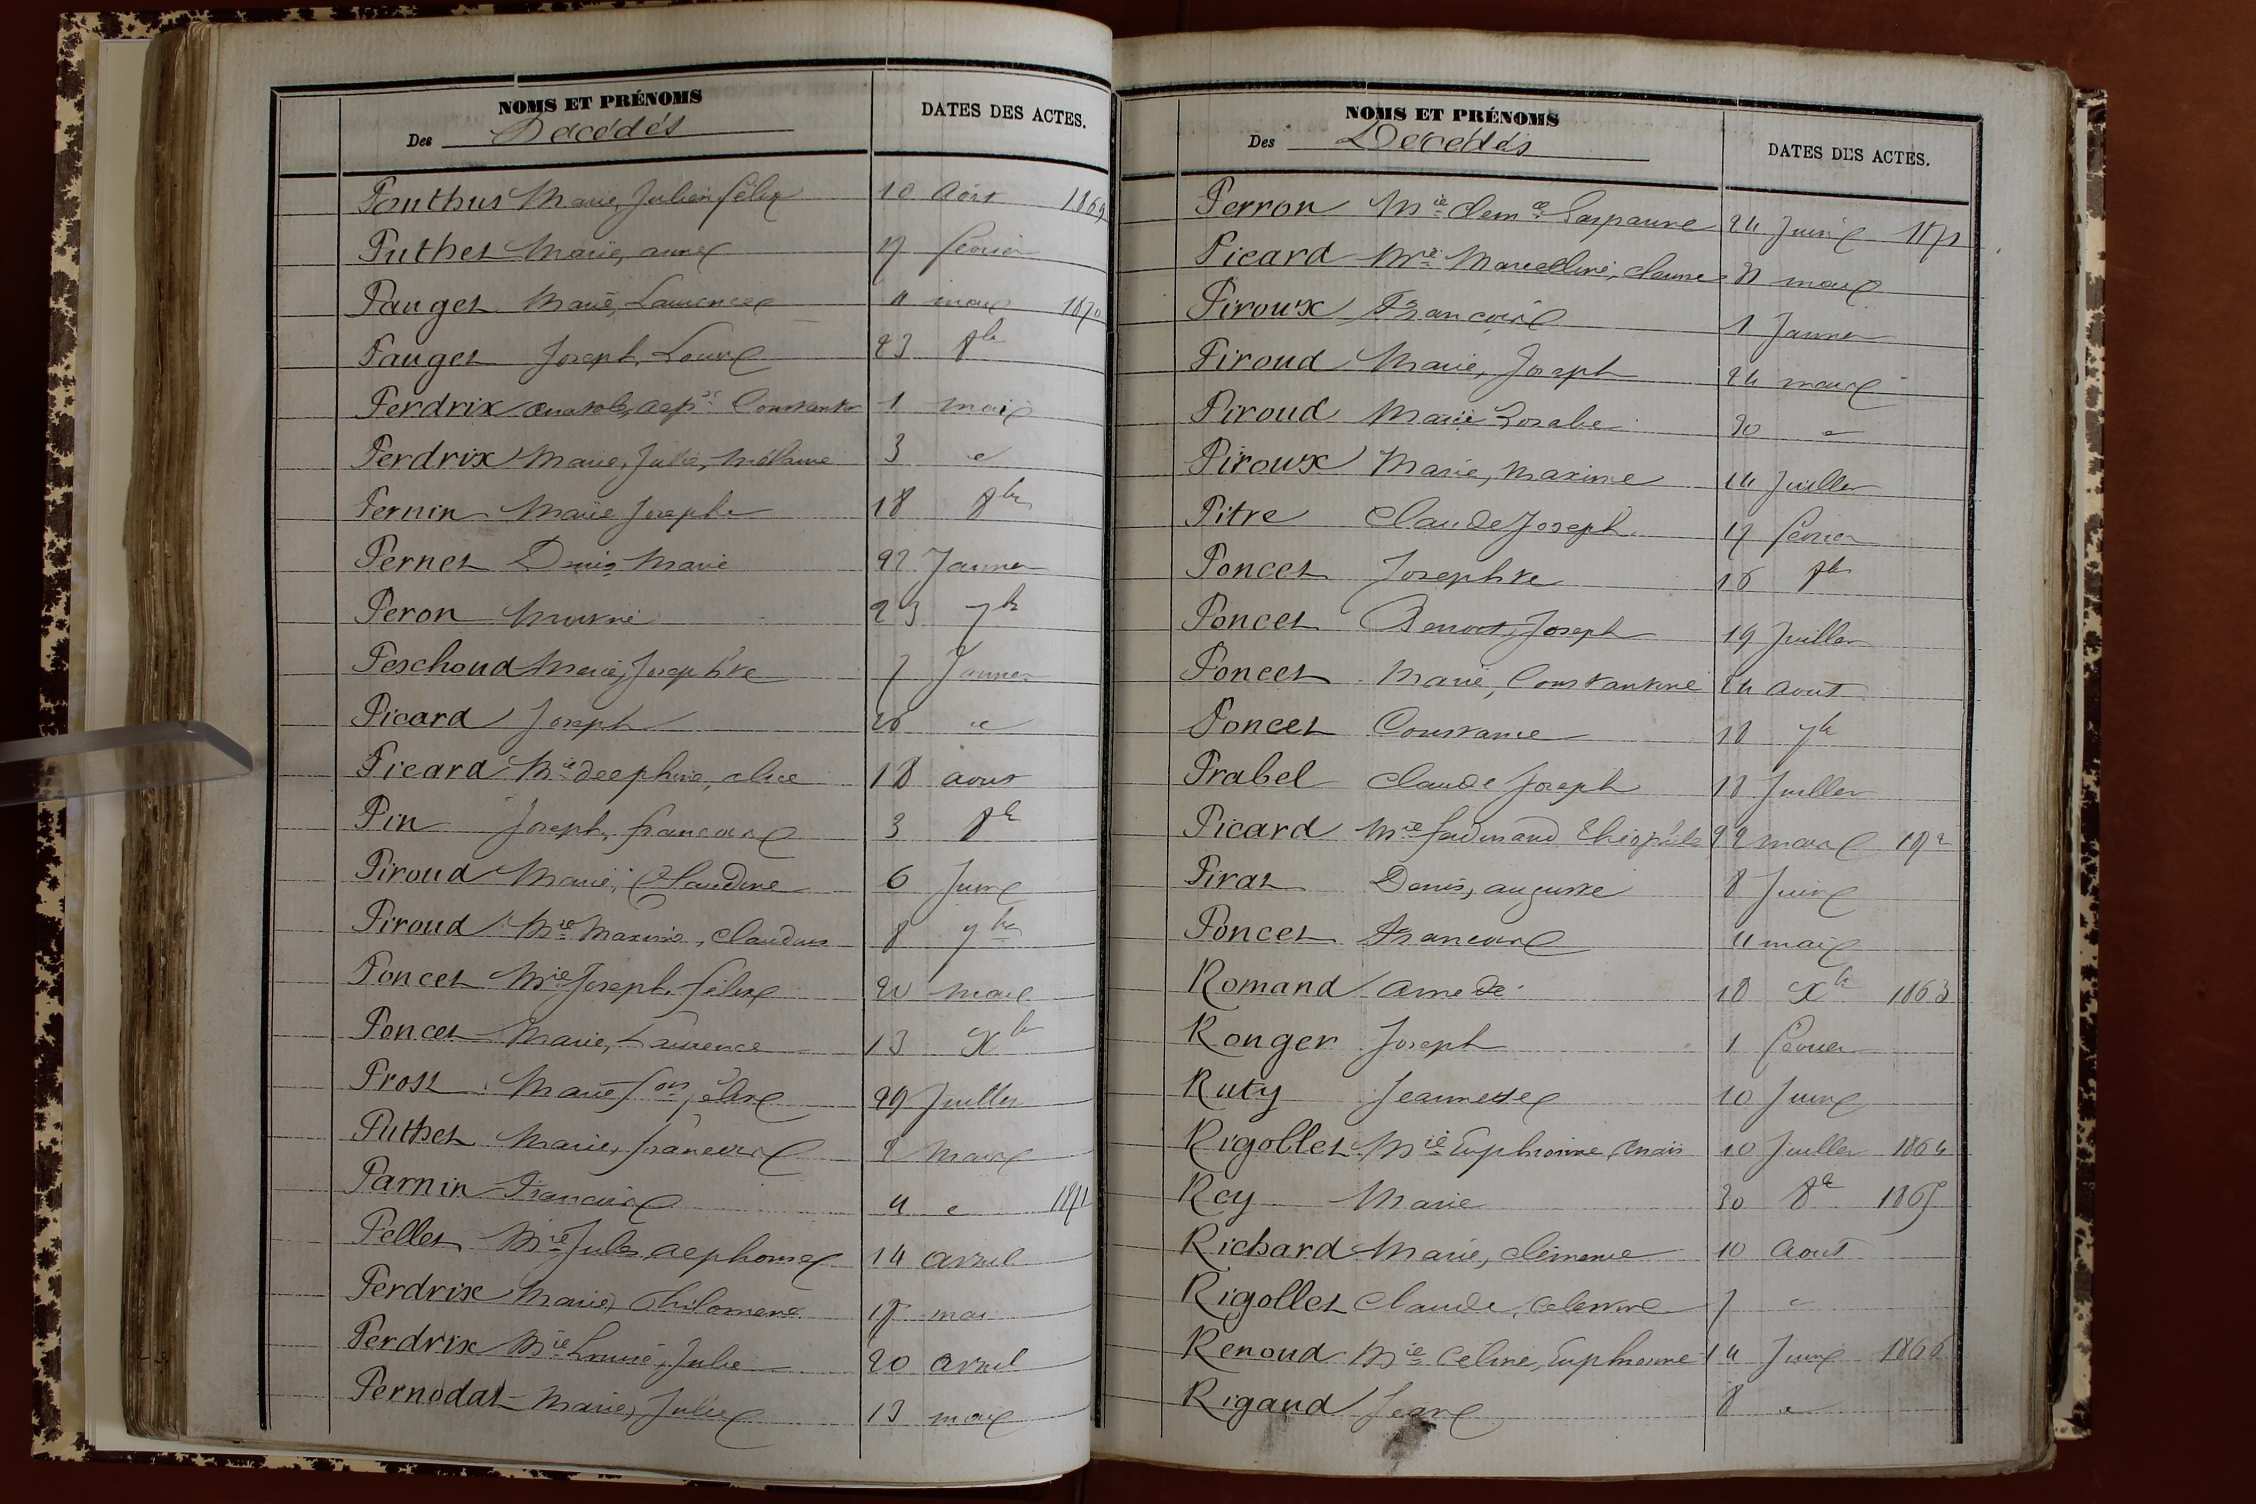 NOMS ET PRÉNOMS
Des Décédés
DATES DES ACTES.
Ponthus Marie, Julien félix 10 Août 1869
Puthet Marie, anne 17 février
Pauget Marie, Laurence 4 mars 1870
Pauget Joseph, Louis 23 8bre
Perdrix anatole, Constantin 1 mai
Perdrix Marie, Julie, Mélanie 3 "
Pernin Marie Joseph 18 8bre
Pernet Denis Marie 22 Janvier
Peron 23 7bre
Peschoud Marie, Josephte 7 Janvier
Picard Joseph 26 "
Picard Mie delphine, alice 18 août
Pin Joseph, francois 3 8bre
Piroud Marie, Claudine 6 Juin
Piroud Mie Maxime, Claudius 8 7bre
Poncet Mie Joseph, félix 20 mai
Poncet Marie, Laurence 13 Xbre
Prost Marie fois félix 29 Juillet
Puthet Marie, francoise 2 Mars
Parnin Francoise 4 " 1871
Pellet Mie Jules alphonse 14 avril
Perdrix Marie, Philomène 17 mai
Perdrix Mie Louise, Julie 20 avril
Pernodat Marie, Julie 13 mai
NOMS ET PRÉNOMS
Des Décédés
DATES DES ACTES.
Perron Mie Clemce 24 Juin 1871
Picard Mie Marcelline, 31 mars
Piroux Francoise 1 Janvier
Piroud Marie, Joseph 24 mars
Piroud Marie Rosalie 30 "
Piroux Marie, Maxime 14 Juillet
Pitre Claude Joseph 17 février
Poncet Josephte 16 8bre
Poncet Benoit, Joseph 19 Juillet
Poncet Marie, Constantine 14 août
Poncet Constance 18 7bre
Prabel Claude Joseph 18 Juillet
Picard Mie ferdinand Théophile 22 mars 1872
Pirat Denis, auguste 8 Juin
Poncet Francoise 4 mai
Romand Amedé 18 Xbre 1863
Ronger Joseph 1 février
Ruty Jeannette 10 Juin
Rigollet Mie Euphrosine, Anaïs 10 Juillet 1864
Rey Marie 30 8bre 1865
Richard Marie, clémence 10 Août
Rigollet Claude, Celestine 7 "
Renoud Mie Céline, Euphrosine 14 Juin 1866
Rigaud Jean 8 "